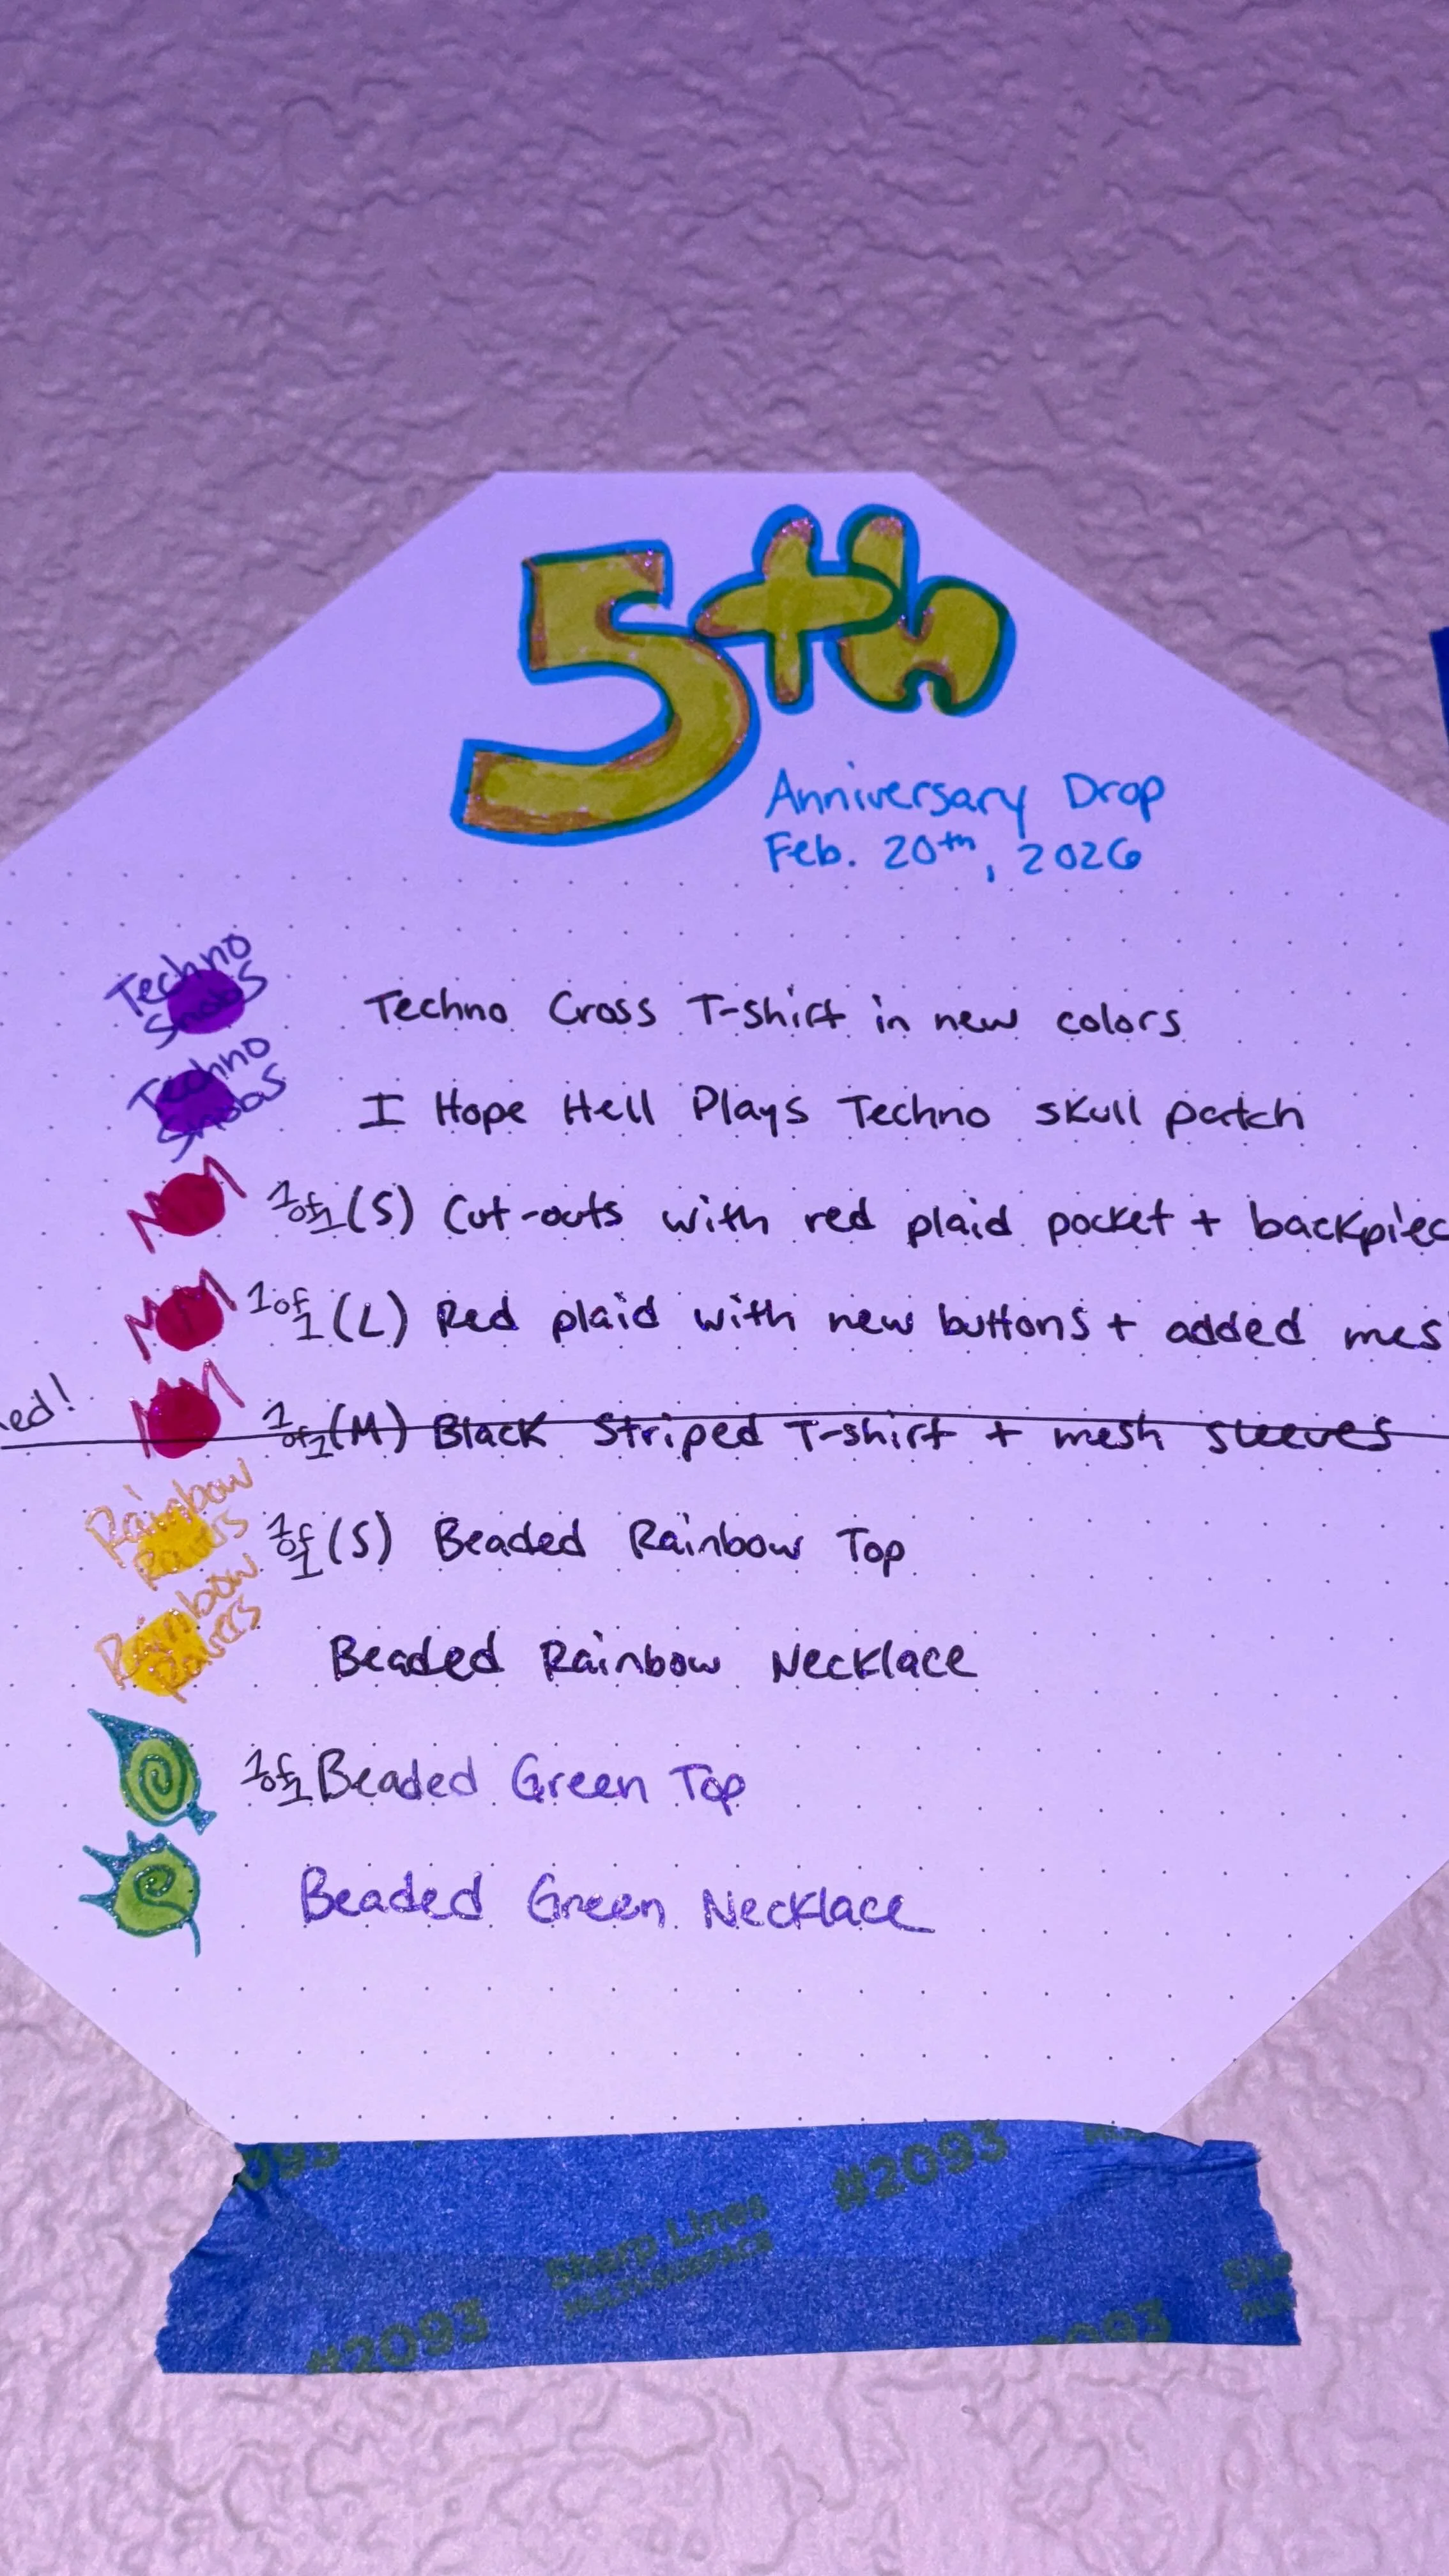 5th
Anniversary Drop
Feb. 20th, 2026
Techno
Snobs
Techno Cross T-shirt in new colors
Techno
Snobs
I Hope Hell Plays Techno skull patch
1of1 (S) Cut-outs with red plaid pocket + backpiec
1of1 (L) Red plaid with new buttons + added mes
ed!
1of1 (M) Black Striped T-shirt + mesh sleeves
Rainbow
Ravers
1of1 (S) Beaded Rainbow Top
Rainbow
Ravers
Beaded Rainbow Necklace
1of1 Beaded Green Top
Beaded Green Necklace
093
#2093
Sharp Lines
MULTI-SURFACE
#2093
2093